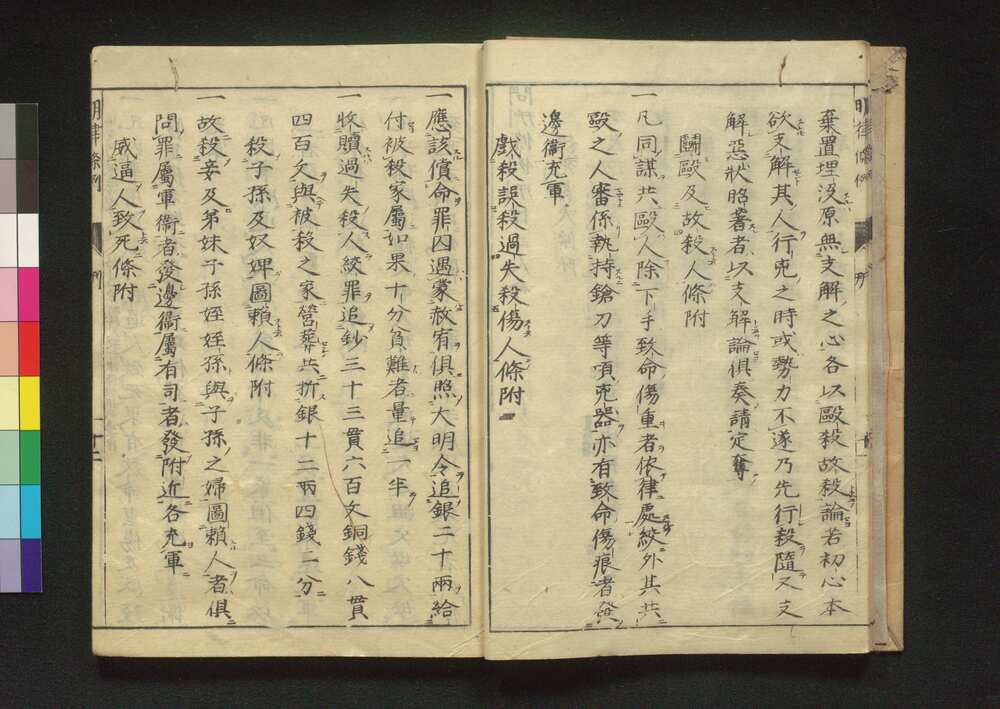 棄置埋沒原無支解之心各以毆殺故殺論若初心本
欲支解其人行兇之時或勢力不遂乃先行殺隨又支
解惡狀昭著者以支解論俱奏請定奪
鬬毆及故殺人條附
一凡同謀共毆人除下手致命傷重者依律處絞外其共
毆之人審係執持鎗刀等項兇器亦有致命傷痕者發
邊衞充軍
戲殺誤殺過失殺傷人條附
一應該償命罪囚遇蒙赦宥俱照大明令追銀二十兩給
付被殺家屬如果十分貧難者量追一半
一收贖過失殺人絞罪追鈔三十三貫六百文銅錢八貫
四百文與被殺之家營葬共折銀十二兩四錢二分
殺子孫及奴婢圖賴人條附
一故殺妾及弟妹子孫姪姪孫與子孫之婦圖賴人者俱
問罪屬軍衞者發邊衞屬有司者發附近各充軍
威逼人致死條附
明律條例
例
十二